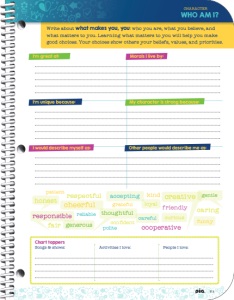 CHARACTER
WHO AM I?
Write about what makes you, you: who you are, what you believe, and
what matters to you. Learning what matters to you will help you make
good choices. Your choices show others your beliefs, values, and priorities.
I'm great at
Morals I live by
I'm unique because
My character is strong because
I would describe myself as
Other people would describe me as
honest
respectful
accepting
kind
creative
gentle
cheerful
friendly
caring
responsible
reliable
thoughtful
careful
fair
generous
polite
cooperative
Chart toppers
Songs & shows
Activities I love
People I love